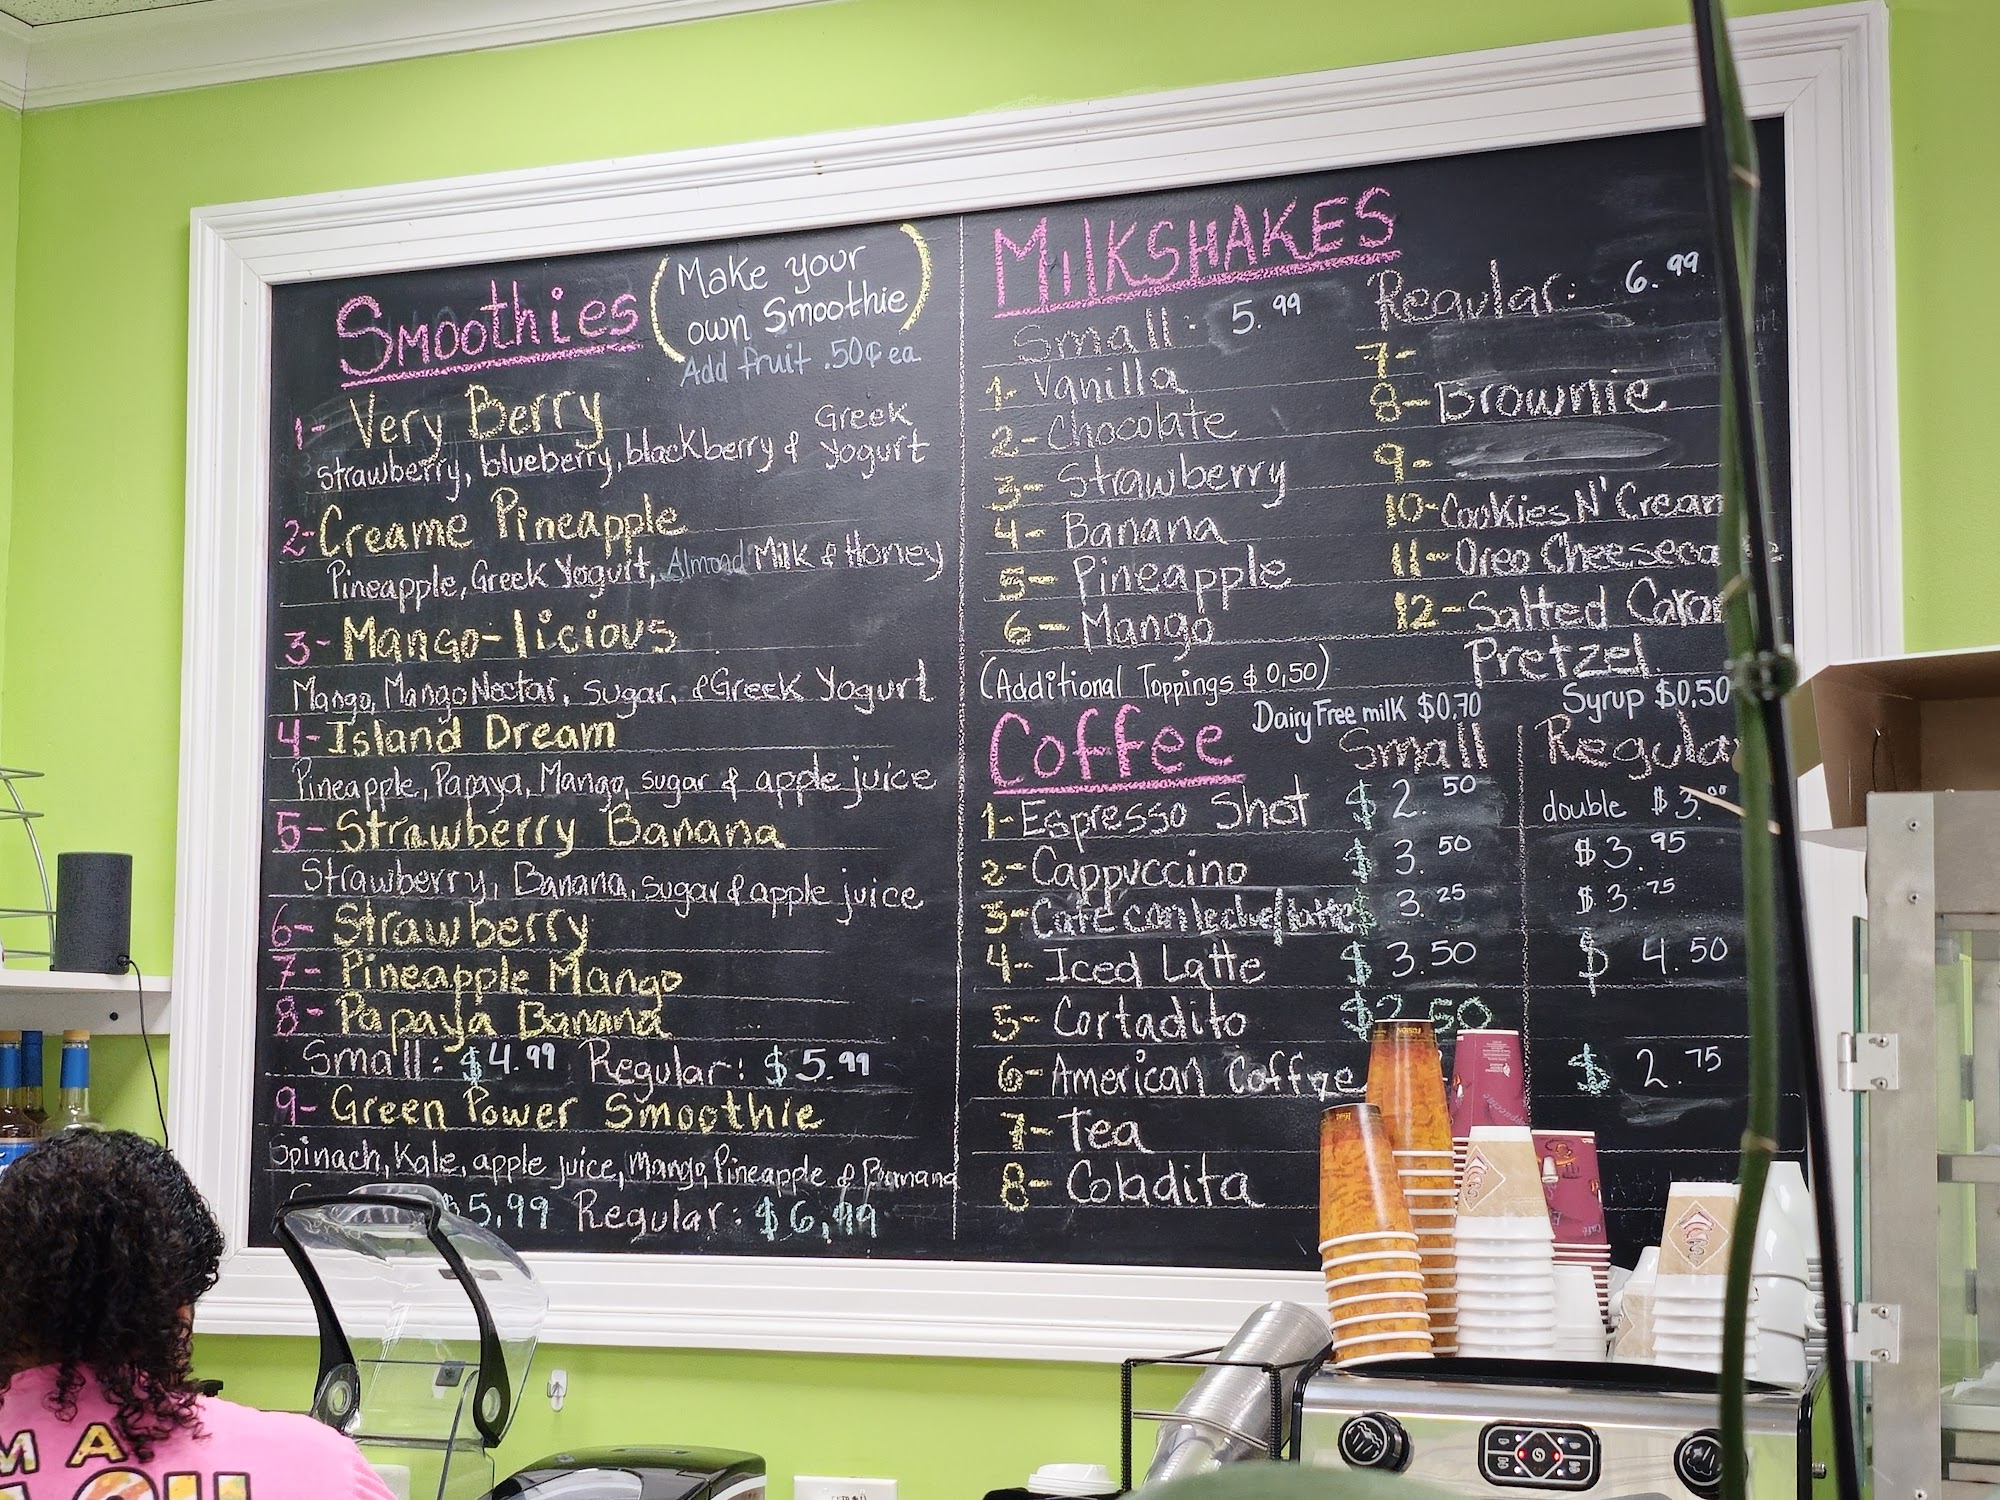 Smoothies
(Make your
own Smoothie)
Add fruit .50¢ ea
1- Very Berry
Strawberry, blueberry, blackberry & Greek Yogurt
2- Creame Pineapple
Pineapple, Greek Yogurt, Almond Milk & Honey
3- Mango-licious
Mango, Mango Nectar, sugar, & Greek Yogurt
4- Island Dream
Pineapple, Papaya, Mango, sugar & apple juice
5- Strawberry Banana
Strawberry, Banana, sugar & apple juice
6- Strawberry
7- Pineapple Mango
8- Papaya Banana
Small: $4.99 Regular: $5.99
9- Green Power Smoothie
Spinach, Kale, apple juice, mango, Pineapple & Banana
$5,99 Regular: $6,99
MilkSHAKES
Small: 5.99 Regular: 6.99
1- Vanilla
2- Chocolate
3- Strawberry
4- Banana
5- Pineapple
6- Mango
7-
8- Brownie
9-
10- Cookies N' Cream
11- Oreo Cheeseca
12- Salted Caram
Pretzel
(Additional Toppings $ 0,50)
Dairy Free milk $0,70
Syrup $0,50
Coffee Small Regular
1- Espresso Shot $2.50 double $3.00
2- Cappuccino $3.50 $3.95
3- Cafe con leche/latte $3.25 $3.75
4- Iced Latte $3.50 $4.50
5- Cortadito $2.50
6- American Coffee $2.75
7- Tea
8- Coladita
M A